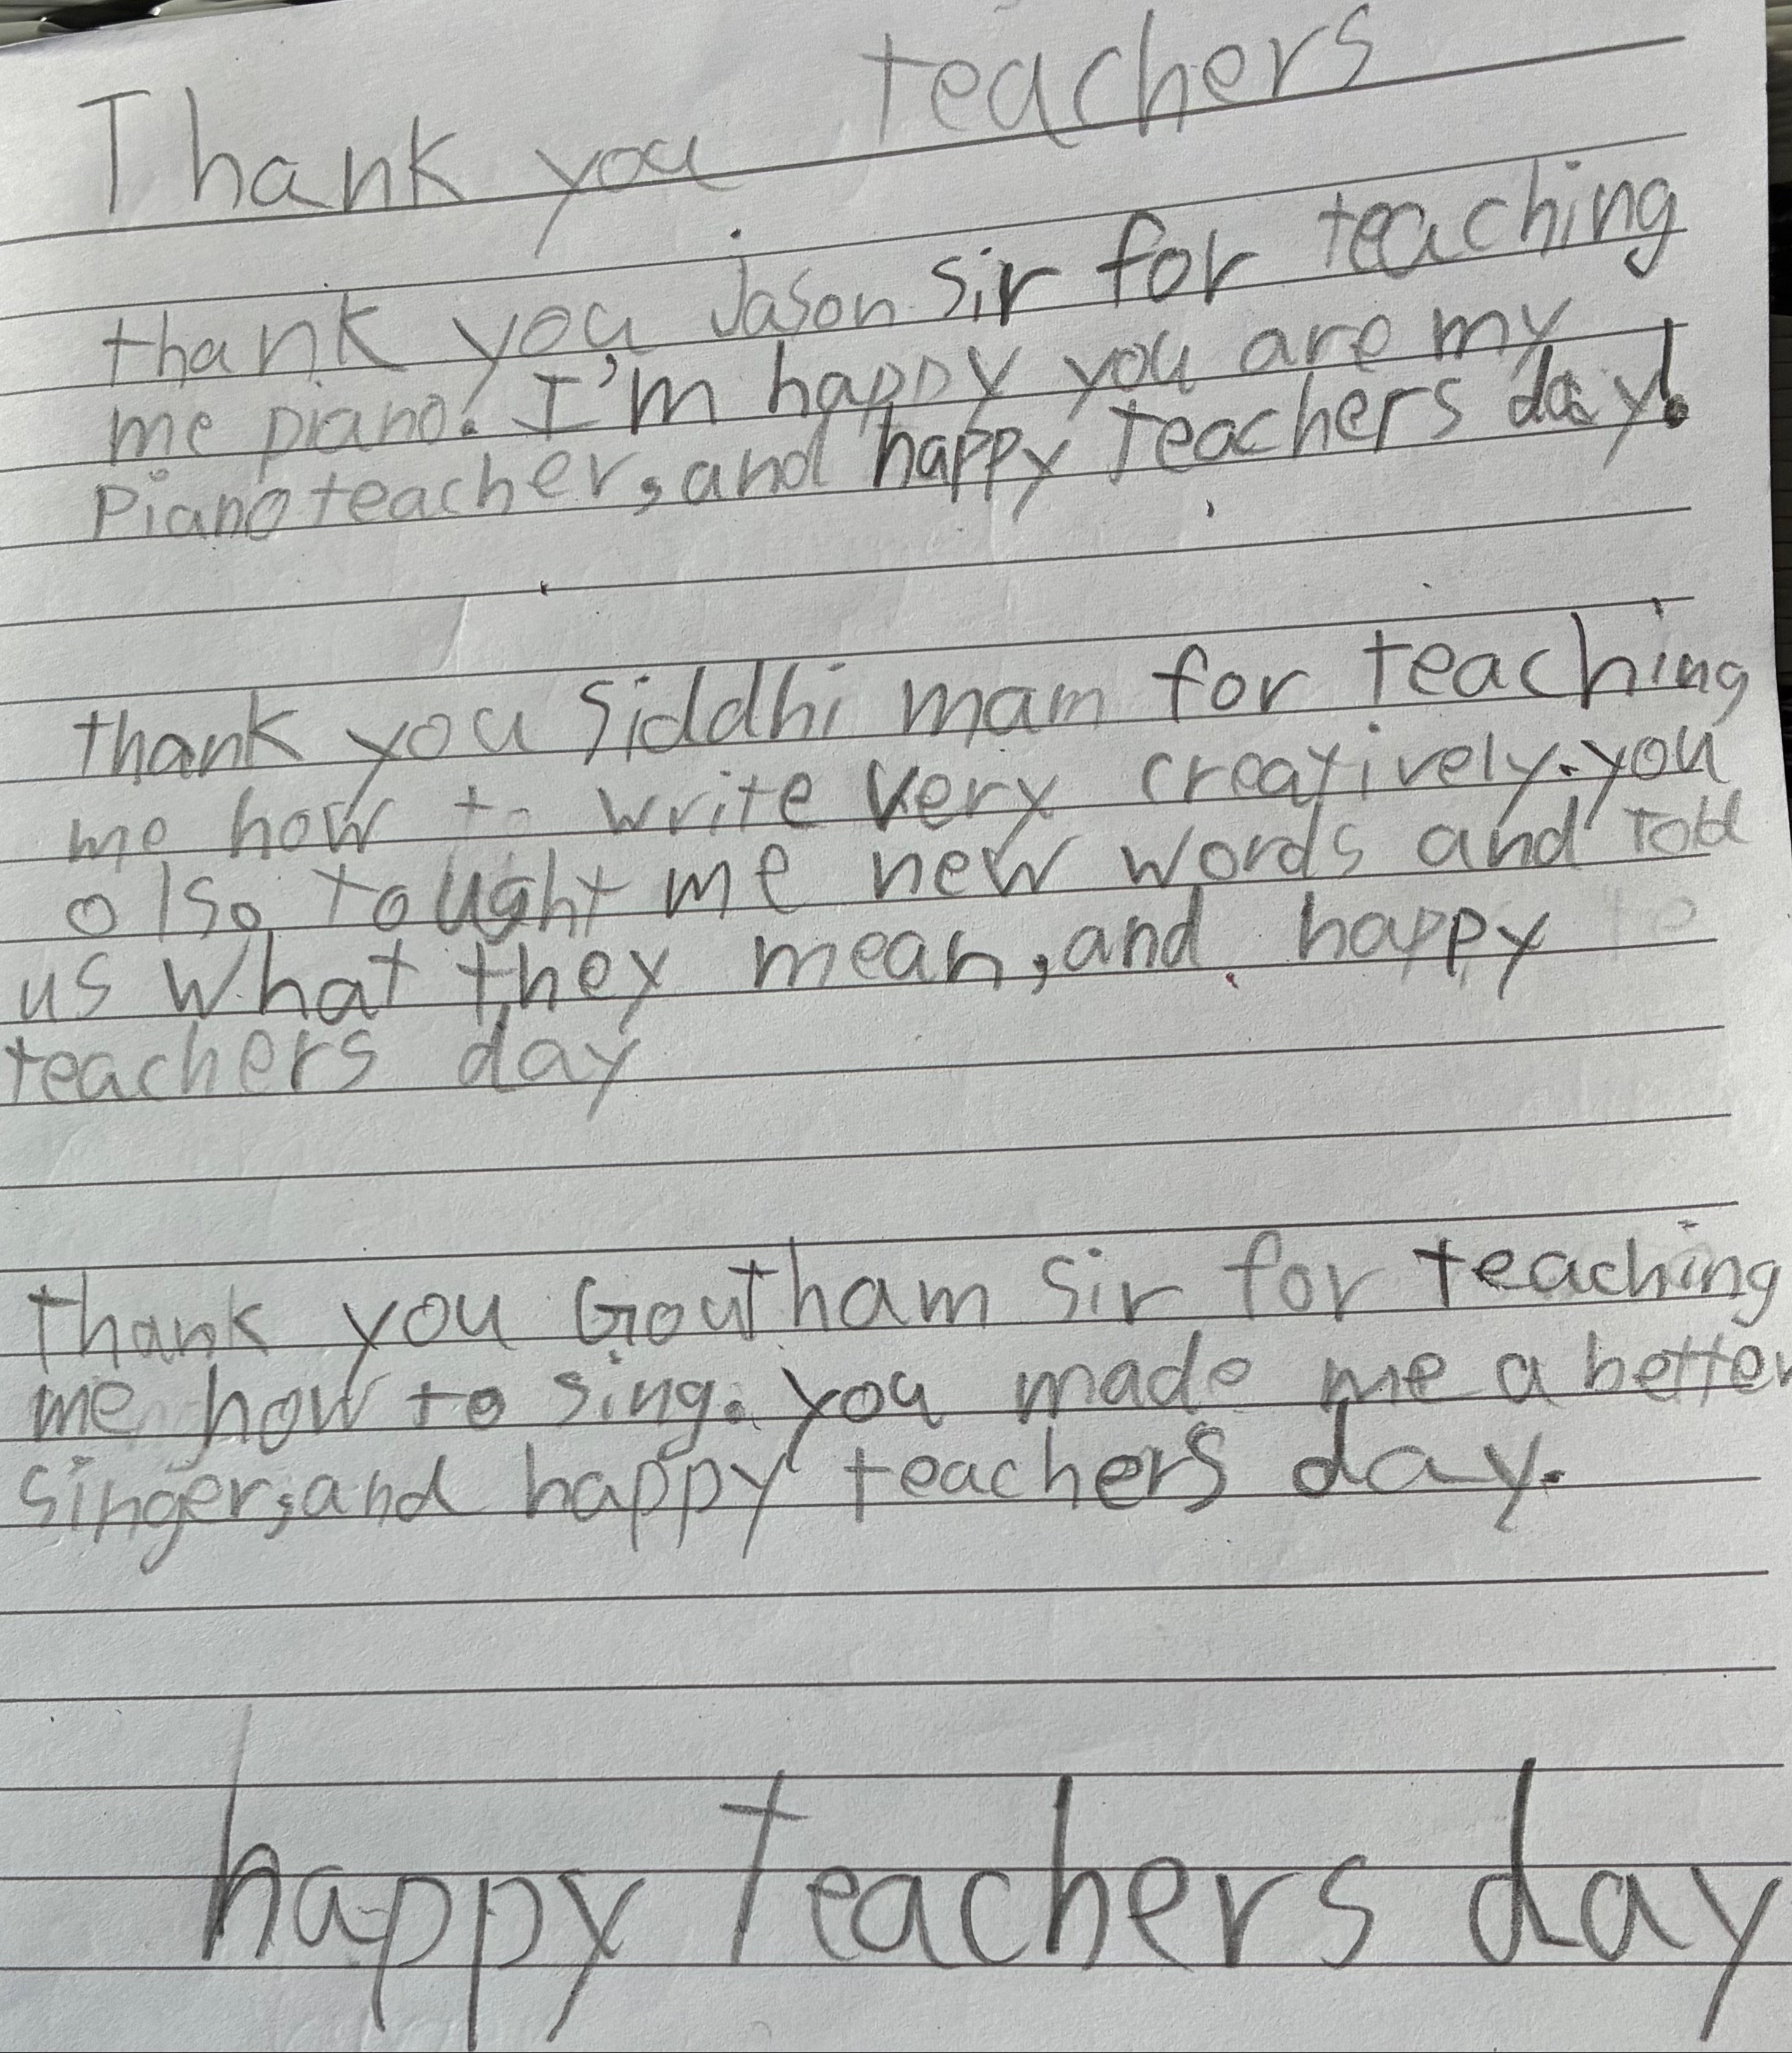 Thank you teachers
thank you Jason sir for teaching
me piano. I'm happy you are my
Piano teacher, and happy teachers day!
thank you Siddhi mam for teaching
me how to write very creatively. you
olso tought me new words and told
us what they mean, and happy
teachers day
thank you Goutham sir for teaching
me how to sing. you made me a better
singer, and happy teachers day.
happy teachers day